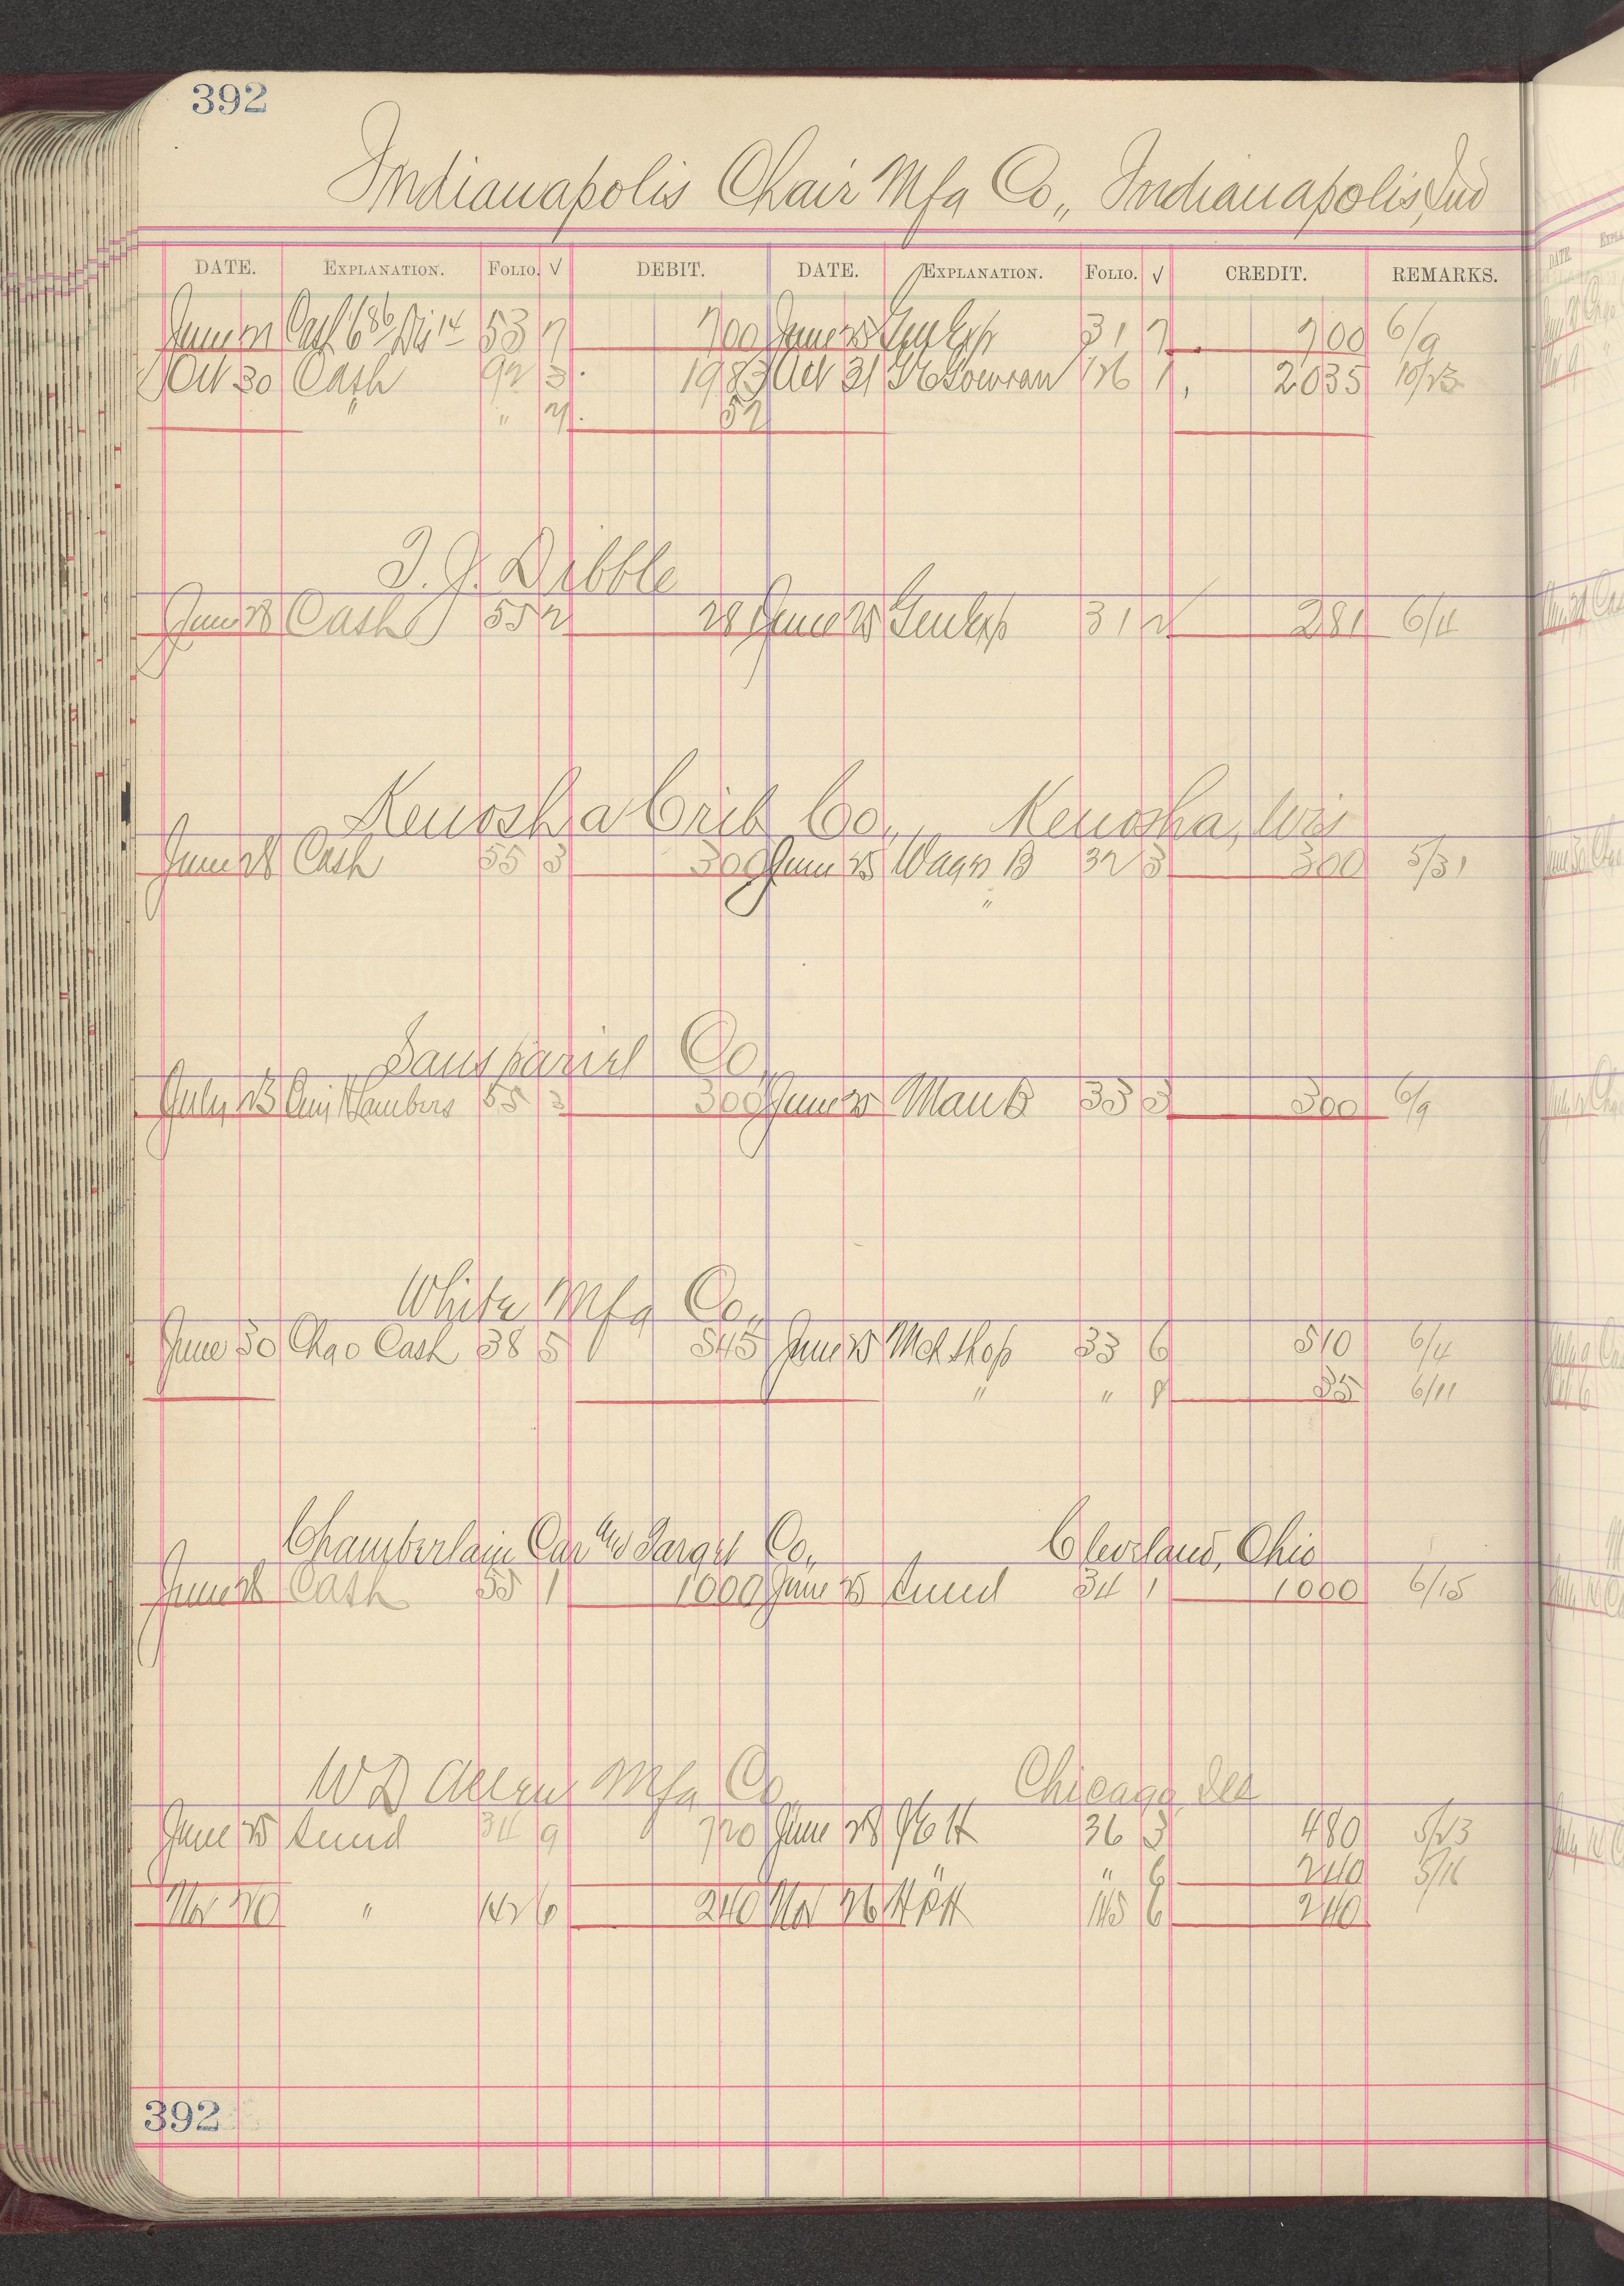 392
Indianapolis Chair Mfg Co,, Indianapolis, Ind
DATE. EXPLANATION. FOLIO. √ DEBIT. DATE. EXPLANATION. FOLIO. √ CREDIT. REMARKS.
June 21 Cash 53 7 700 June 25 Genl Exp 31 7 700 6/9
Oct 30 Cash 92 3 1983 Oct 31 126 1 2035 10/23
" " 4 52
T. J. Dibble
June 28 Cash 55 2 28 June 25 Genl Exp 31 2 281 6/4
Kenosha Crib Co,, Kenosha, Wis
June 28 Cash 55 3 300 June 25 Wagn B 32 3 300 5/31
"
Sanspariel Co,
July 23 55 3 300 June 25 Man B 33 3 300 6/9
White Mfg Co,,
June 30 Chgo Cash 38 5 545 June 25 Mch Shop 33 6 510 6/4
" " 8 35 6/11
Chamberlain Car and Target Co,, Cleveland, Ohio
June 28 Cash 55 1 1000 June 25 Sund 34 1 1000 6/15
W D Allen Mfg Co Chicago, Ills
June 25 Sund 34 9 720 June 28 36 3 480 5/23
" " 6 240 5/16
Nov 20 " 142 6 240 Nov 26 145 6 240
392